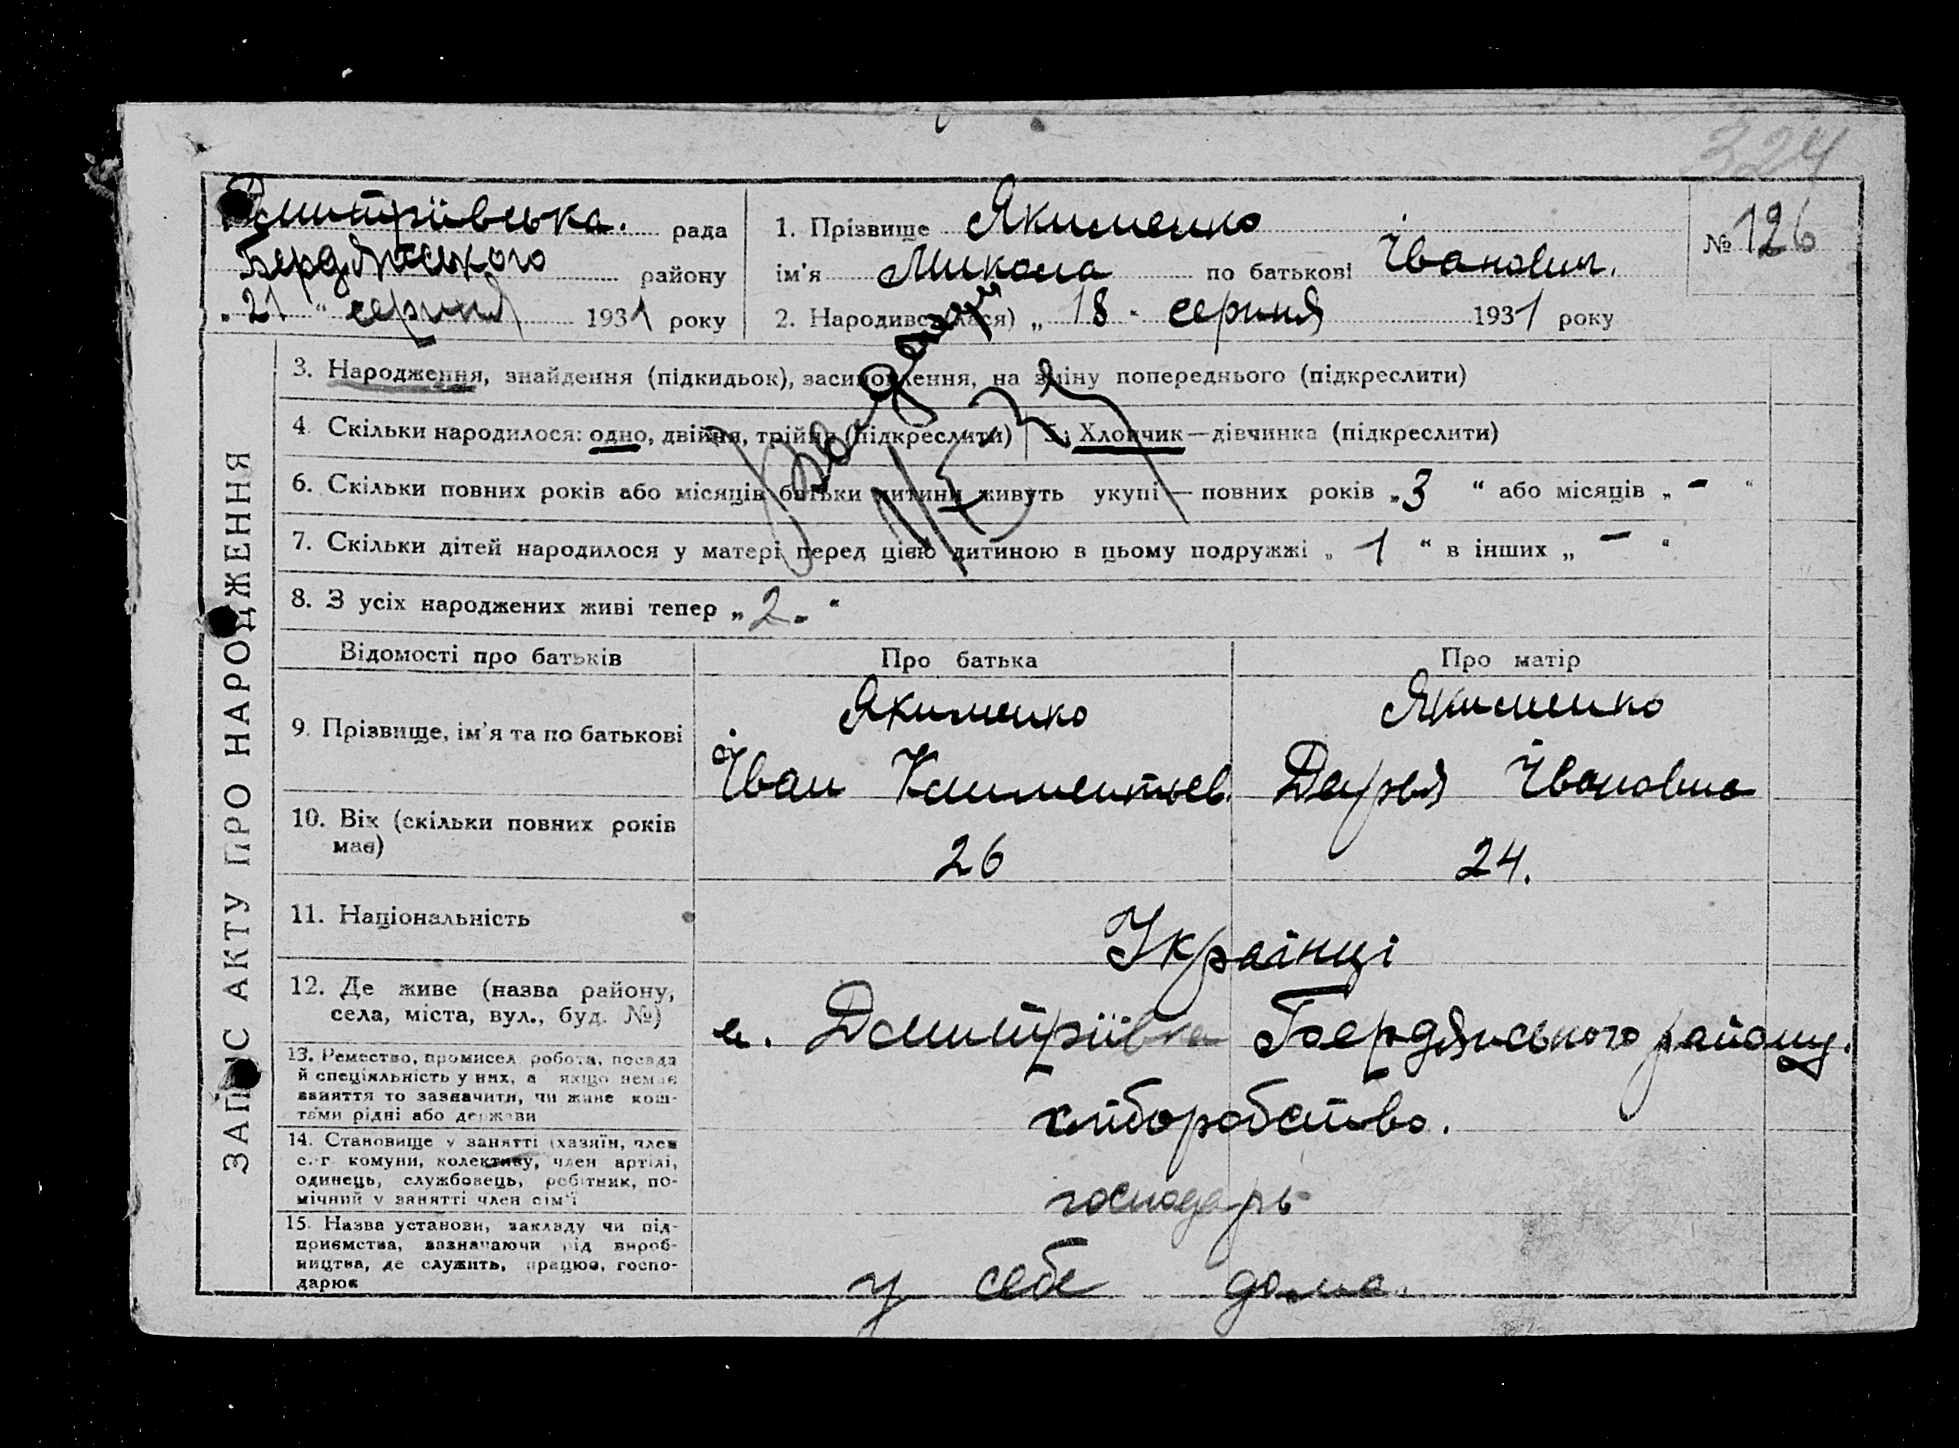 324
Дмитріївська. рада
Бердянського району
„21“ серпня 1931 року
1. Прізвище Якименко
ім'я Микола по батькові Іванович.
2. Народився (лася) „18“ серпня 1931 року
№ 126
ЗАПИС АКТУ ПРО НАРОДЖЕННЯ
3. Народження, знайдення (підкидьок), засиновлення, на зміну попереднього (підкреслити)
4. Скільки народилося: одно, двійня, трійня (підкреслити) 5. Хлопчик—дівчинка (підкреслити)
6. Скільки повних років або місяців батьки дитини живуть укупі—повних років „3“ або місяців „-“
7. Скільки дітей народилося у матері перед цією дитиною в цьому подружжі „1“ в інших „-“
8. З усіх народжених живі тепер „2.“
Відомості про батьків Про батька Про матір
9. Прізвище, ім'я та по батькові
Якименко
Іван Климентьев.
Якименко
Дарья Івановна
10. Вік (скільки повних років має) 26 24.
11. Національність Українці
12. Де живе (назва району, села, міста, вул., буд. №)
с. Дмитріївка Бердянського району.
13. Ремество, промисел, робота, посада
й спеціяльність у них, а якщо немає
заняття то зазначити, чи живе кош-
тами рідні або держави
хліборобство.
14. Становище у занятті (хазяїн, член
с.-г. комуни, колективу, член артілі,
одинець, службовець, робітник, по-
мічний у занятті член сім'ї
господарь
15. Назва установи, закладу чи під-
приємства, зазначаючи рід вироб-
ництва, де служить, працює, госпо-
дарює
у себе дома.